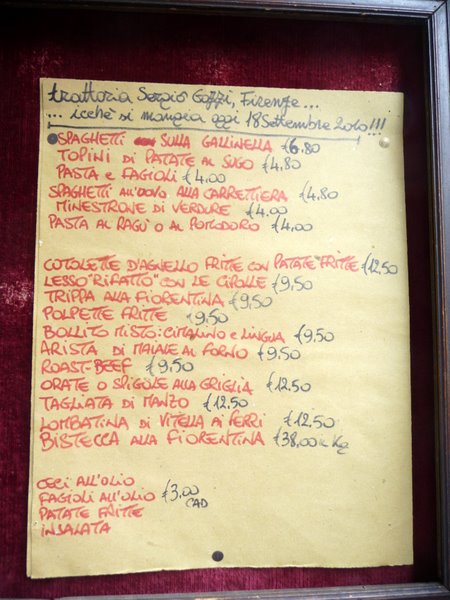 trattoria Sergio Gozzi, Firenze...
... icchè si mangia oggi 18 Settembre 2010!!!
SPAGHETTI SULLA GALLINELLA €6.80
TOPINI DI PATATE AL SUGO €4,80
PASTA E FAGIOLI €4.00
SPAGHETTI ALL'UOVO ALLA CARRETTIERA €4,80
MINESTRONE DI VERDURE €4.00
PASTA AL RAGÙ O AL POMODORO €4,00
COTOLETTE D'AGNELLO FRITTE CON PATATE FRITTE €12.50
LESSO "RIFATTO" CON LE CIPOLLE €9,50
TRIPPA ALLA FIORENTINA €9,50
POLPETTE FRITTE €9,50
BOLLITO MISTO: CIMALINO E LINGUA €9,50
ARISTA DI MAIALE AL FORNO €9,50
ROAST-BEEF €9,50
ORATE O SPIGOLE ALLA GRIGLIA €12.50
TAGLIATA DI MANZO €12.50
LOMBATINA DI VITELLA AI FERRI €12.50
BISTECCA ALLA FIORENTINA €38,00 Kg
CECI ALL'OLIO
FAGIOLI ALL'OLIO €3.00
CAD
PATATE FRITTE
INSALATA